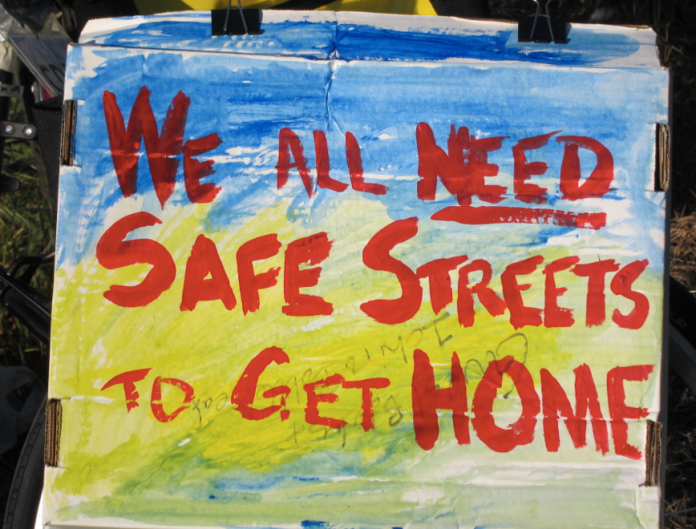 We ALL NEED
SAFE STREETS
TO GET HOME